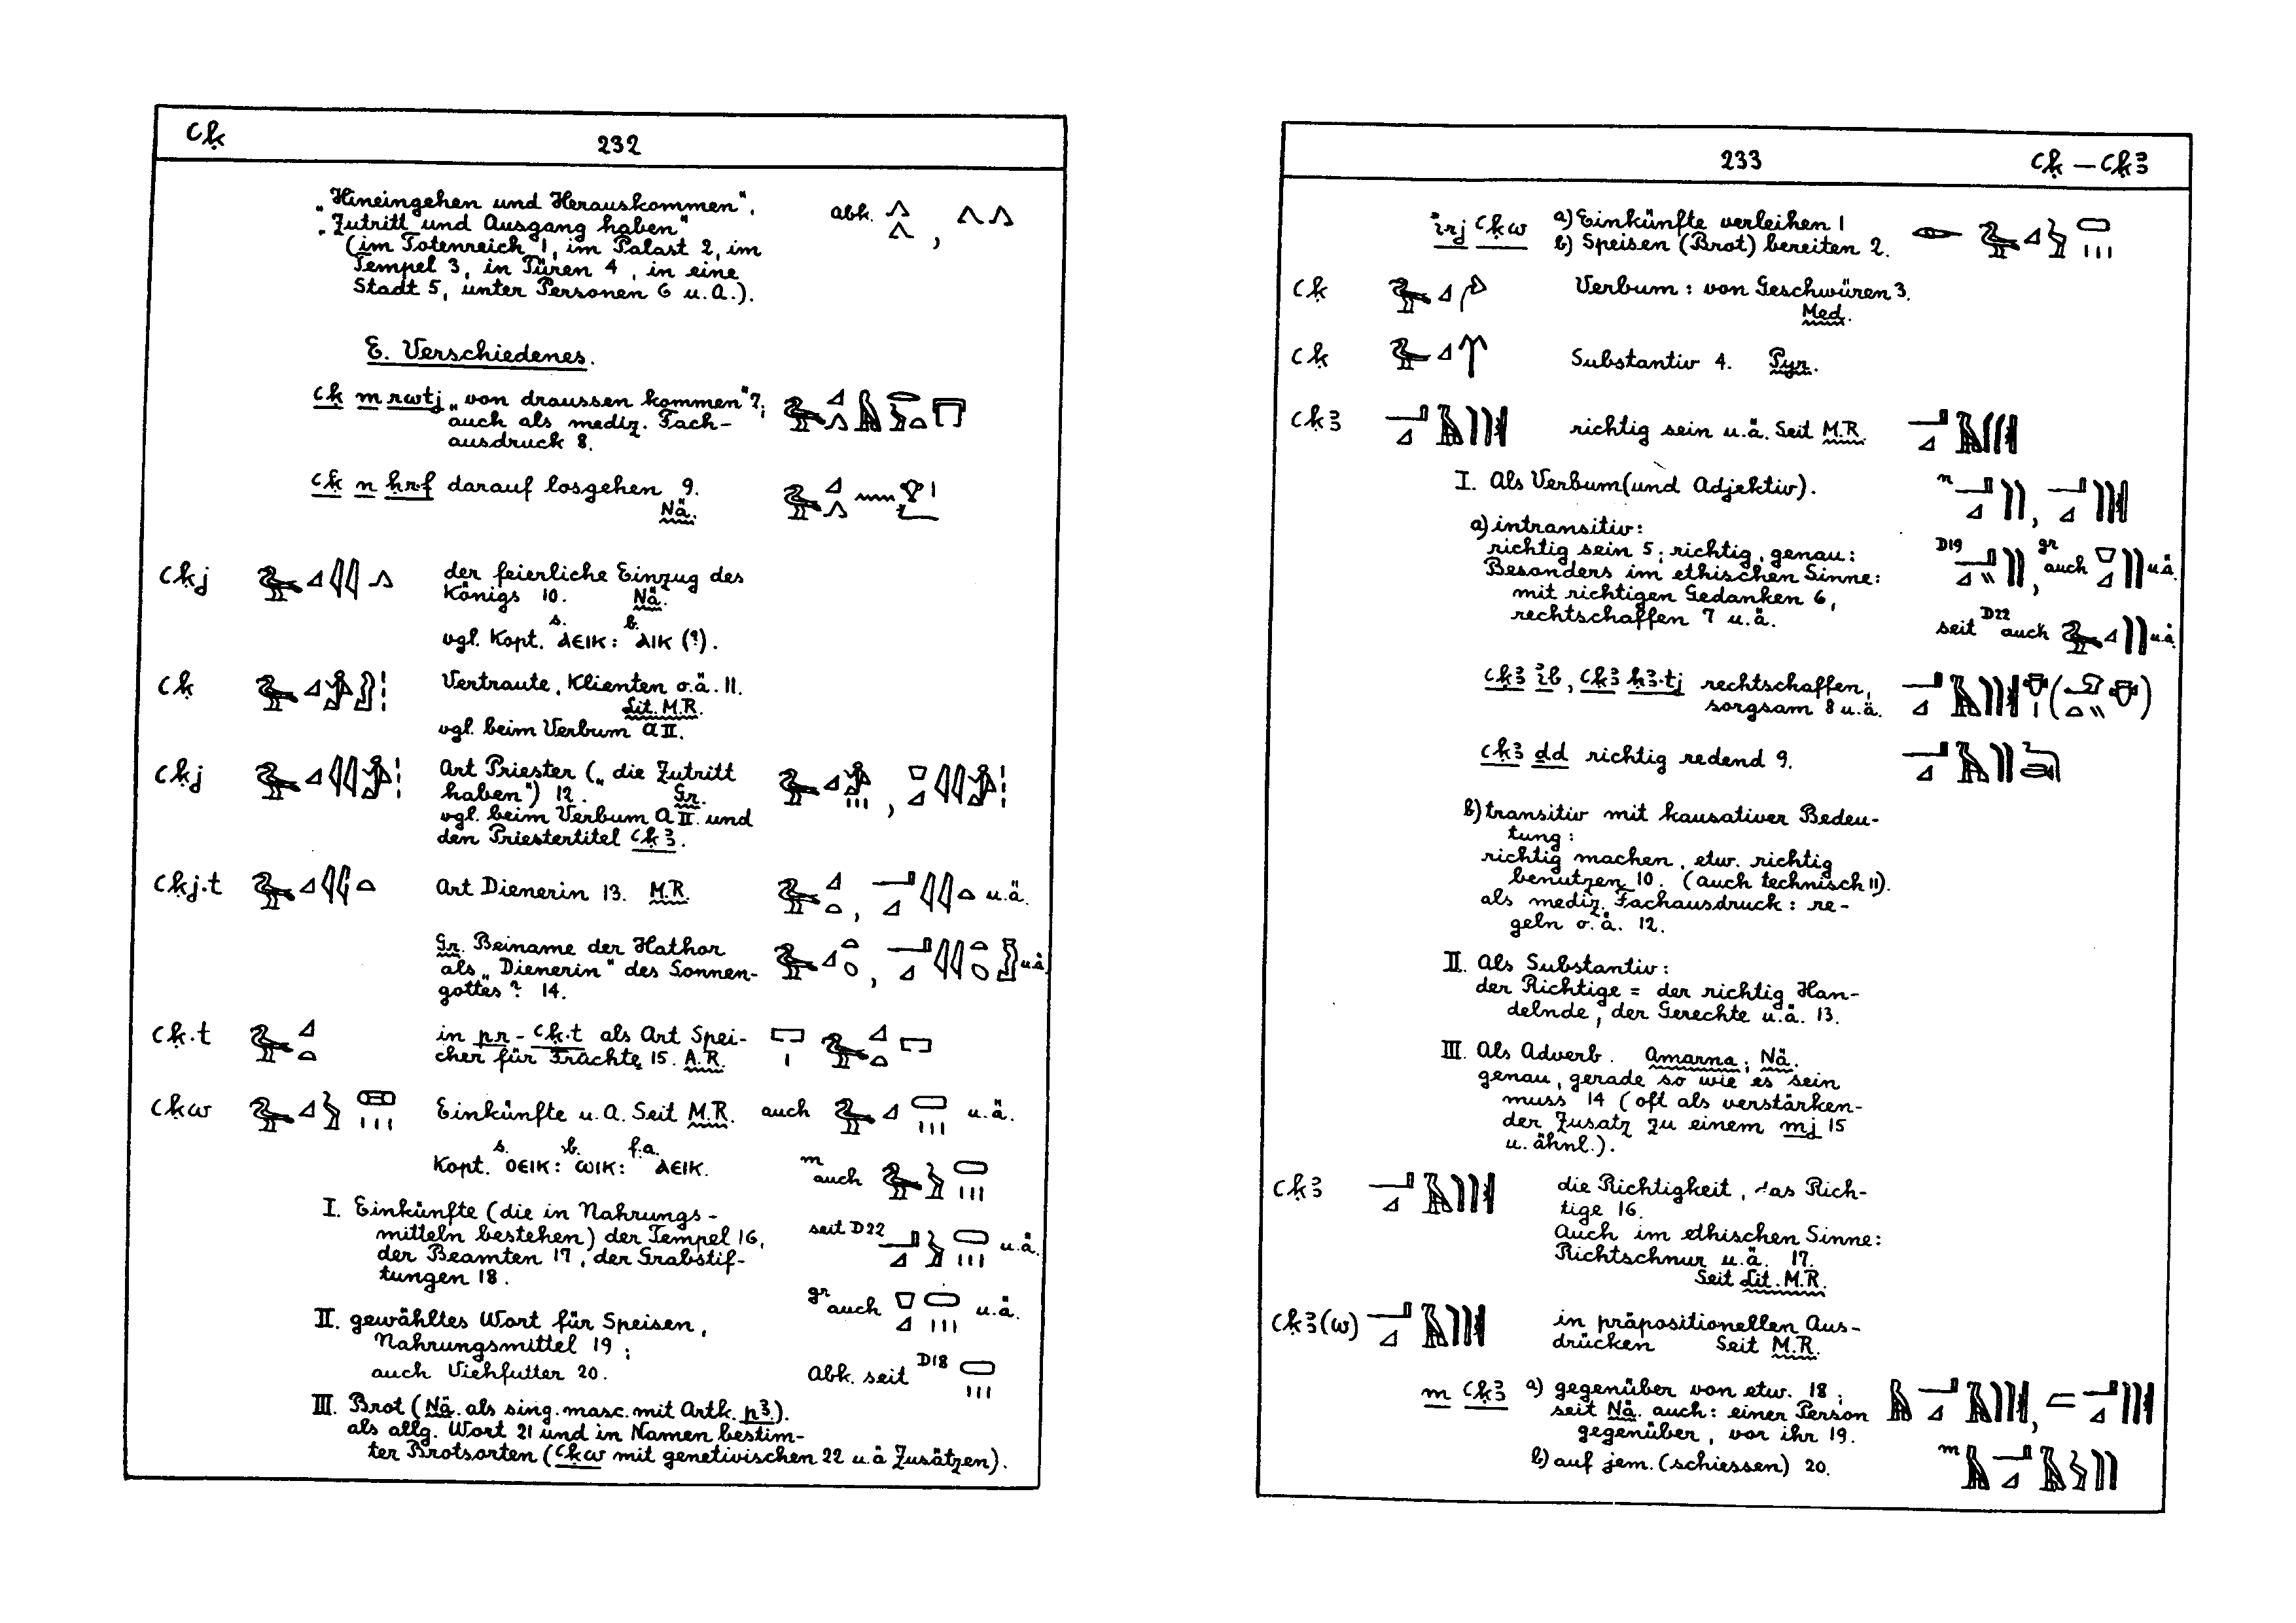 ꜥḳ
232
„Hineingehen und Herauskommen“,
„Zutritt und Ausgang haben“
(im Totenreich 1, im Palast 2, im
Tempel 3, in Türen 4, in eine
Stadt 5, unter Personen 6 u.a.).
abk.
E. Verschiedenes.
ꜥḳ m rwtj „von draussen kommen“ 7;
auch als mediz. Fach-
ausdruck 8.
ꜥḳ n ḥr.f darauf losgehen 9.
Nä.
ꜥḳj der feierliche Einzug des
Königs 10. Nä.
s. b.
vgl. Kopt. ⲁⲉⲓⲕ: ⲁⲓⲕ (?).
ꜥḳ Vertraute, Klienten o.ä. 11.
Lit. M.R.
vgl. beim Verbum A II.
ꜥḳj Art Priester („die Zutritt
haben“) 12. Gr.
vgl. beim Verbum A II. und
den Priestertitel ꜥḳꜣ.
ꜥḳj.t Art Dienerin 13. M.R. u.ä.
Gr. Beiname der Hathor
als „Dienerin“ des Sonnen-
gottes? 14. u.ä.
ꜥḳ.t in pr-ꜥḳ.t als Art Spei-
cher für Früchte 15. A.R.
ꜥḳw Einkünfte u.a. Seit M.R. auch u.ä.
s. b. f.a.
Kopt. ⲟⲉⲓⲕ: ⲱⲓⲕ: ⲁⲉⲓⲕ. m auch
I. Einkünfte (die in Nahrungs-
mitteln bestehen) der Tempel 16,
der Beamten 17, der Grabstif-
tungen 18.
seit D22 u.ä.
gr auch u.ä.
II. gewähltes Wort für Speisen,
Nahrungsmittel 19;
auch Viehfutter 20.
Abk. seit D18
III. Brot (Nä. als sing. masc. mit Artk. pꜣ).
als allg. Wort 21 und in Namen bestim-
ter Brotsorten (ꜥḳw mit genetivischen 22 u.ä Zusätzen).
233
ꜥḳ — ꜥḳꜣ
irj ꜥḳw a) Einkünfte verleihen 1
b) Speisen (Brot) bereiten 2.
ꜥḳ Verbum: von Geschwüren 3.
Med.
ꜥḳ Substantiv 4. Pyr.
ꜥḳꜣ richtig sein u.ä. Seit M.R.
I. Als Verbum (und Adjektiv). n
a) intransitiv:
richtig sein 5; richtig, genau:
Besonders im ethischen Sinne:
mit richtigen Gedanken 6,
rechtschaffen 7 u.ä.
D19 gr auch u.ä.
seit D22 auch u.ä.
ꜥḳꜣ ib, ꜥḳꜣ ḥꜣ.tj rechtschaffen,
sorgsam 8 u.ä.
ꜥḳꜣ ḏd richtig redend 9.
b) transitiv mit kausativer Bedeu-
tung:
richtig machen, etw. richtig
benutzen 10. (auch technisch 11).
als mediz. Fachausdruck: re-
geln o.ä. 12.
II. Als Substantiv:
der Richtige = der richtig Han-
delnde, der Gerechte u.ä. 13.
III. Als Adverb. Amarna; Nä.
genau, gerade so wie es sein
muss 14 (oft als verstärken-
der Zusatz zu einem mj 15
u. ähnl.).
ꜥḳꜣ die Richtigkeit, das Rich-
tige 16.
Auch im ethischen Sinne:
Richtschnur u.ä. 17.
Seit Lit. M.R.
ꜥḳꜣ(w) in präpositionellen Aus-
drücken Seit M.R.
m ꜥḳꜣ a) gegenüber von etw. 18;
seit Nä. auch: einer Person
gegenüber, vor ihr 19.
b) auf jem. (schiessen) 20. m